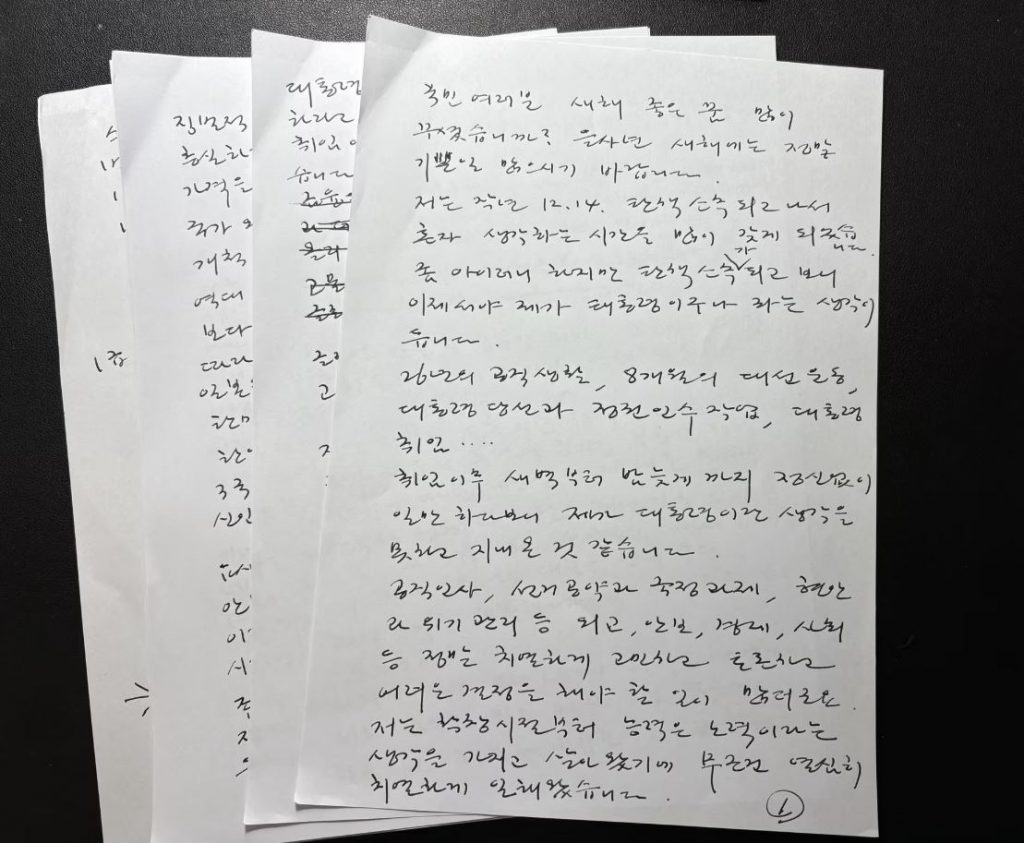 국민 여러분 새해 좋은 꿈 많이
꾸셨습니까? 을사년 새해에는 정말
기쁜일 많으시기 바랍니다.
저는 작년 12.14. 탄핵소추 되고 나서
혼자 생각하는 시간을 많이 갖게 되었습니다.
좀 아이러니 하지만 탄핵소추가 되고 보니
이제서야 제가 대통령이구나 하는 생각이
듭니다.
26년의 공직생활, 8개월의 대선 운동,
대통령 당선과 정권 인수 작업, 대통령
취임 ....
취임이후 새벽부터 밤늦게 까지 정신없이
일만 하다보니 제가 대통령이란 생각을
못하고 지내온 것 같습니다.
공직인사, 선거 공약과 국정과제, 현안
과 위기 관리 등 외교, 안보, 경제, 사회
등 정말 치열하게 고민하고 토론하고
어려운 결정을 해야 할 일이 많더군요.
저는 학창시절부터 능력은 노력이라는
생각을 가지고 살아 왔기에 무조건 열심히
치열하게 일해왔습니다.
1
대통령
하라고
취임
습니다
고
직무적
충실하
가격을
국가
개척
역대
보다
따라
일본
한미
3국